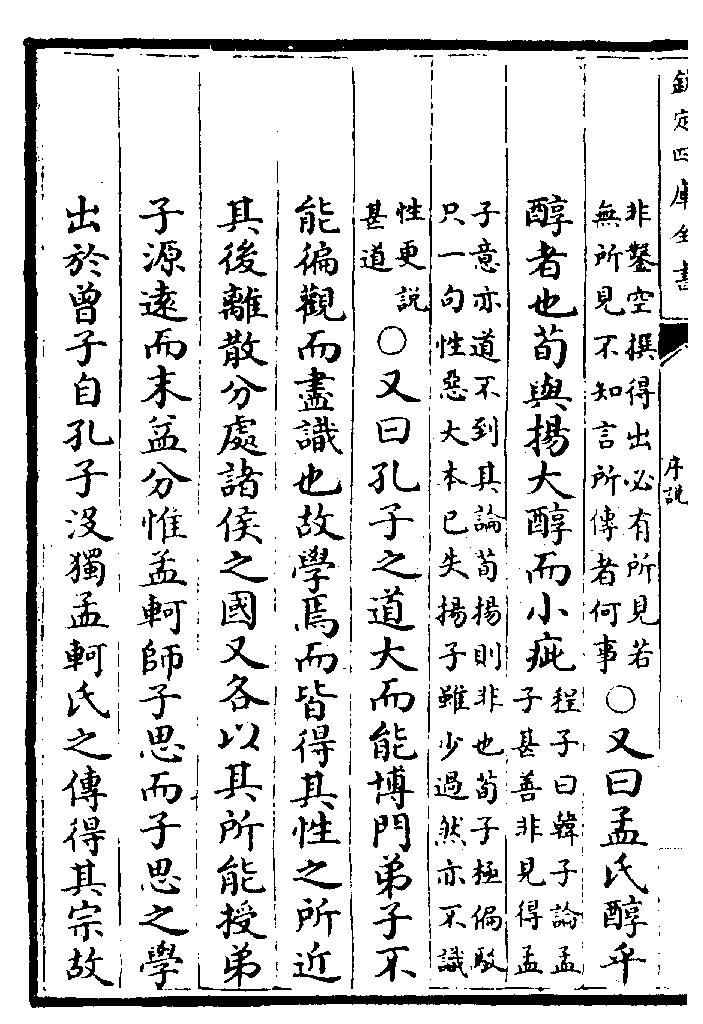 欽定四庫全書
序說
非鑿空撰得出必有所見若
無所見不知言所傳者何事
○又曰孟氏醇乎
醇者也荀與揚大醇而小疵
程子曰韓子論孟
子甚善非見得孟
子意亦道不到其論荀揚則非也荀子極偏駁
只一句性惡大本已失揚子雖少過然亦不識
性更說
甚道
○又曰孔子之道大而能博門弟子不
能徧觀而盡識也故學焉而皆得其性之所近
其後離散分處諸侯之國又各以其所能授弟
子源遠而末益分惟孟軻師子思而子思之學
出於曾子自孔子沒獨孟軻氏之傳得其宗故